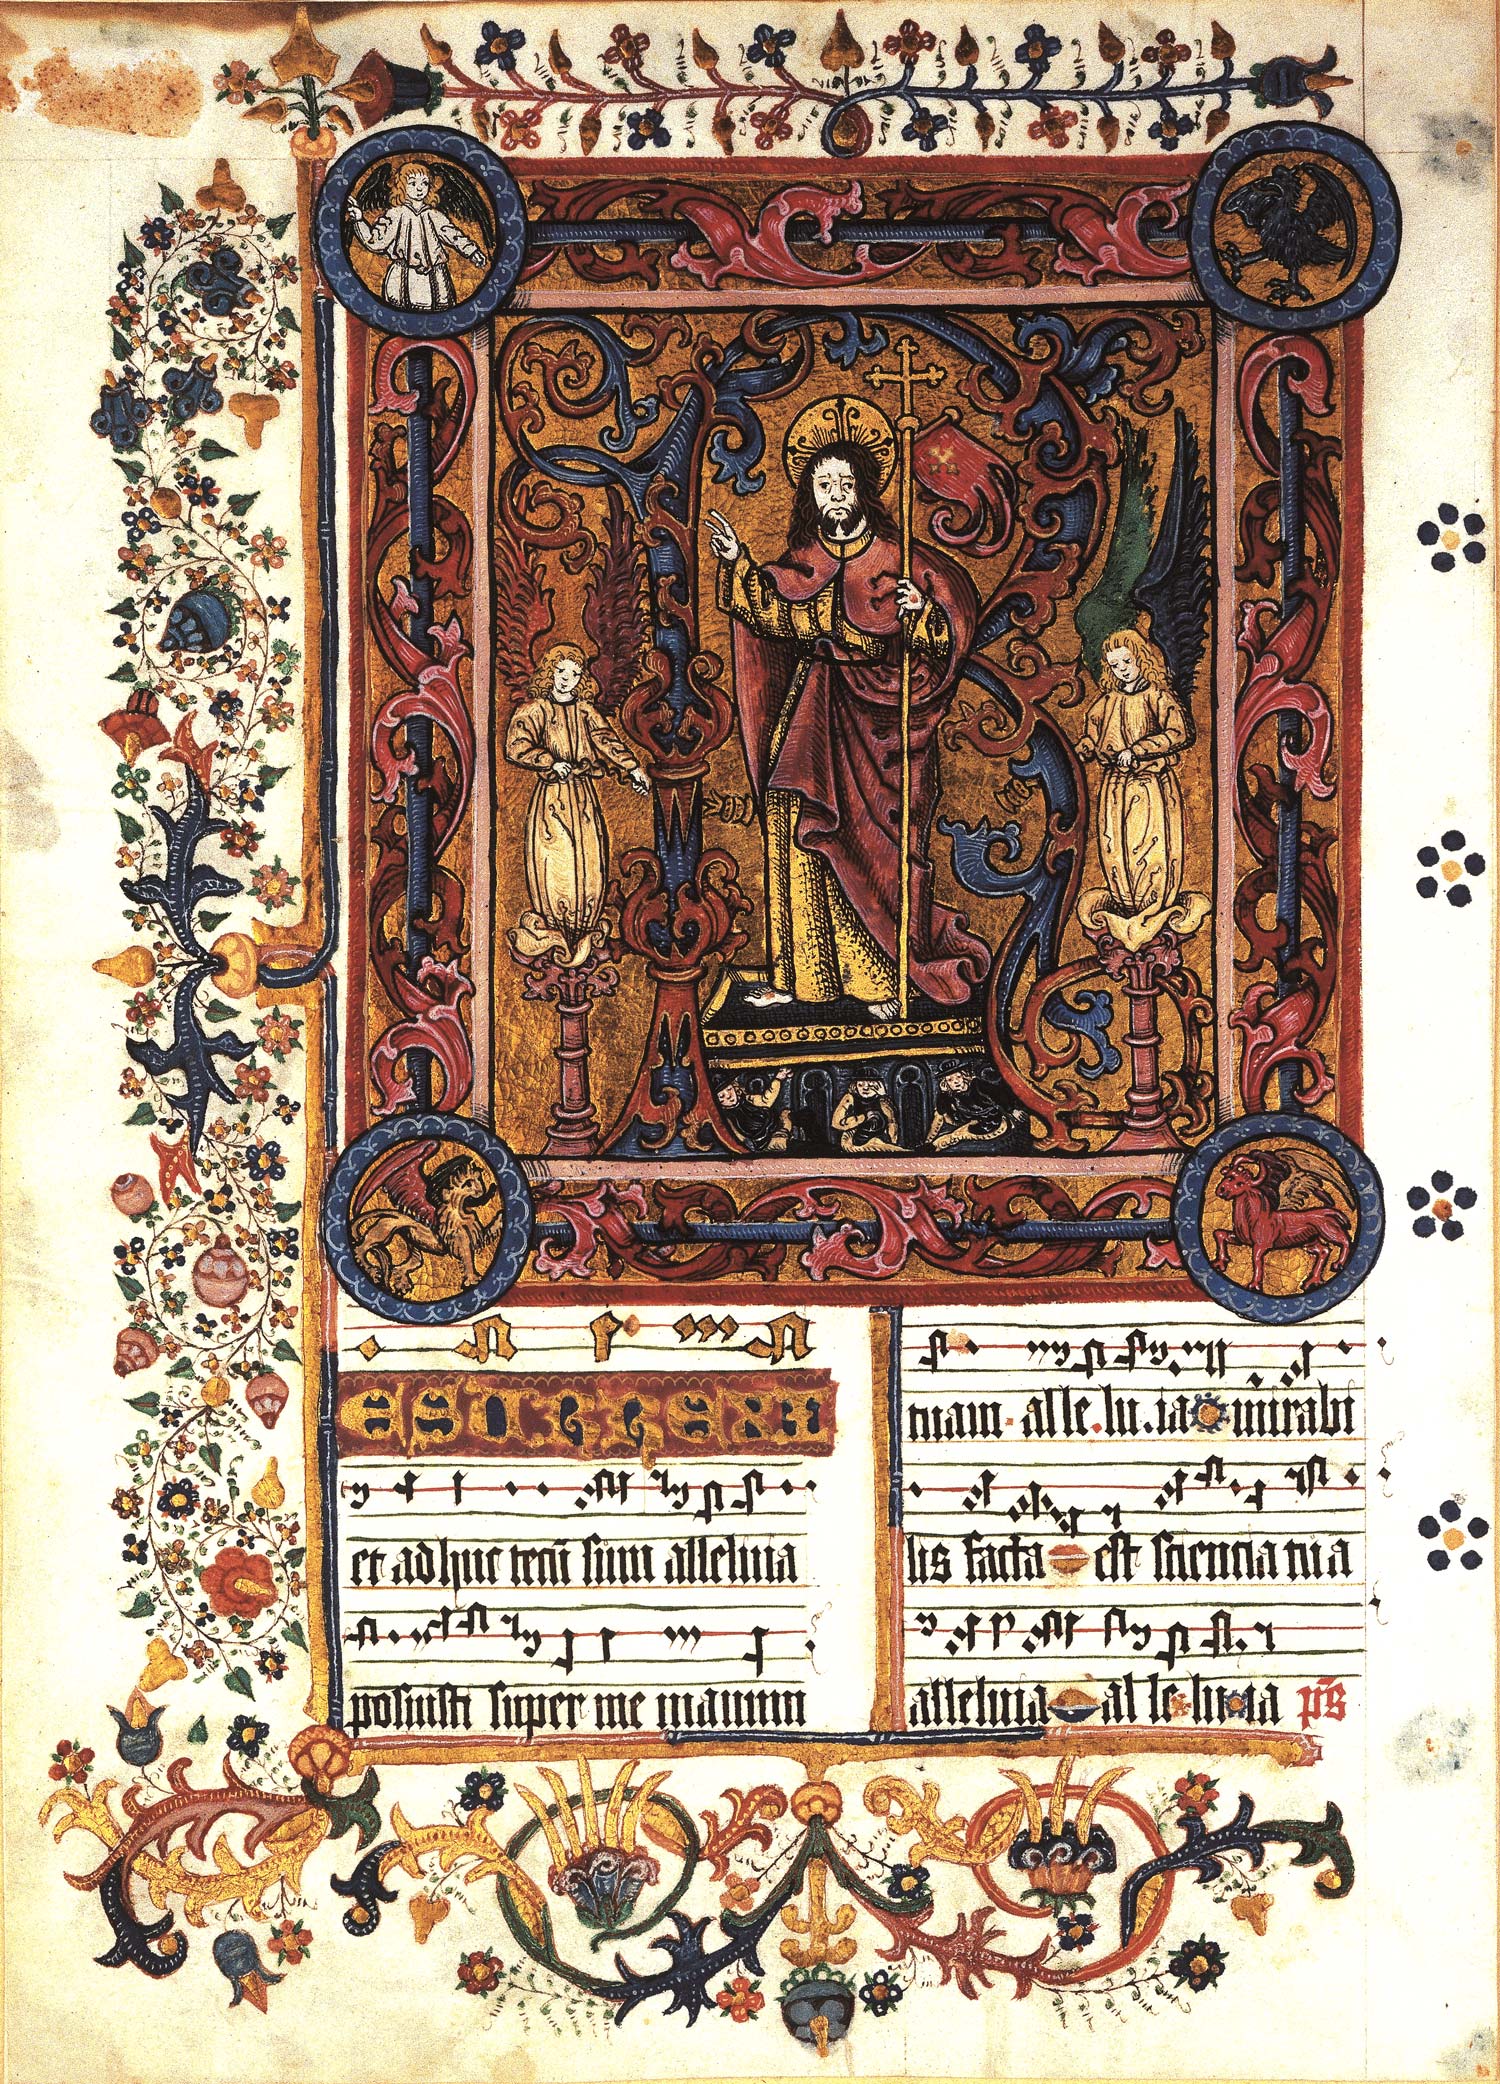 RESURREXI
et adhuc tecū sum alleluia
posuisti super me manum
tuam alle lu ia mirabi
lis facta est sciencia tua
alleluia al le lu ia p̄s